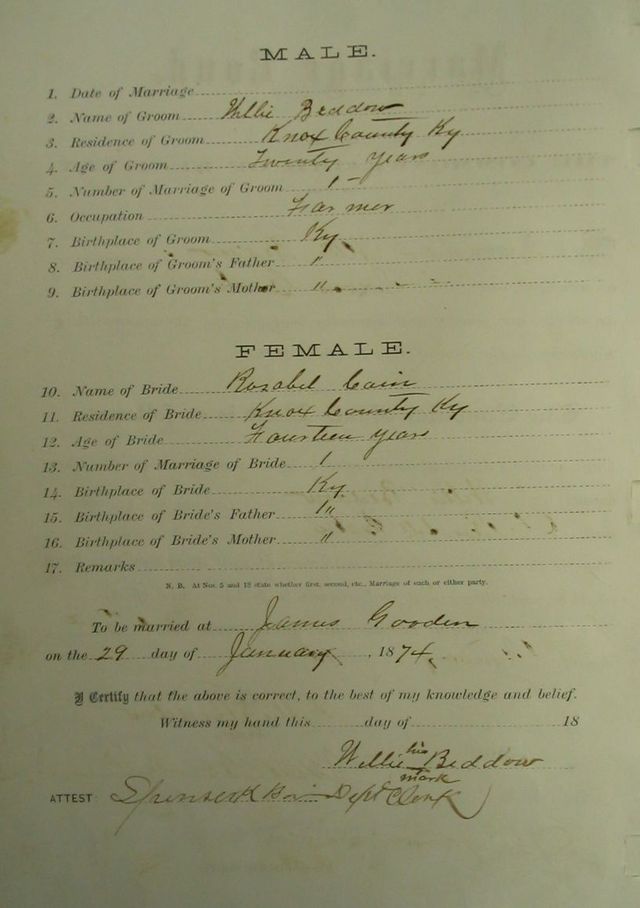 MALE.
1. Date of Marriage
2. Name of Groom Willie Beddow
3. Residence of Groom Knox County Ky
4. Age of Groom Twenty years
5. Number of Marriage of Groom 1 -
6. Occupation Farmer
7. Birthplace of Groom Ky
8. Birthplace of Groom's Father "
9. Birthplace of Groom's Mother "
FEMALE.
10. Name of Bride Rosabel Cain
11. Residence of Bride Knox County Ky
12. Age of Bride Fourteen years
13. Number of Marriage of Bride 1
14. Birthplace of Bride Ky.
15. Birthplace of Bride's Father "
16. Birthplace of Bride's Mother "
17. Remarks
N. B. At Nos. 5 and 13 state whether first, second, etc., Marriage of each or either party.
To be married at James Gooden
on the 29 day of January, 1874.
I Certify that the above is correct, to the best of my knowledge and belief.
Witness my hand this day of 18
his
Willie Beddow
mark
ATTEST Dept Clerk